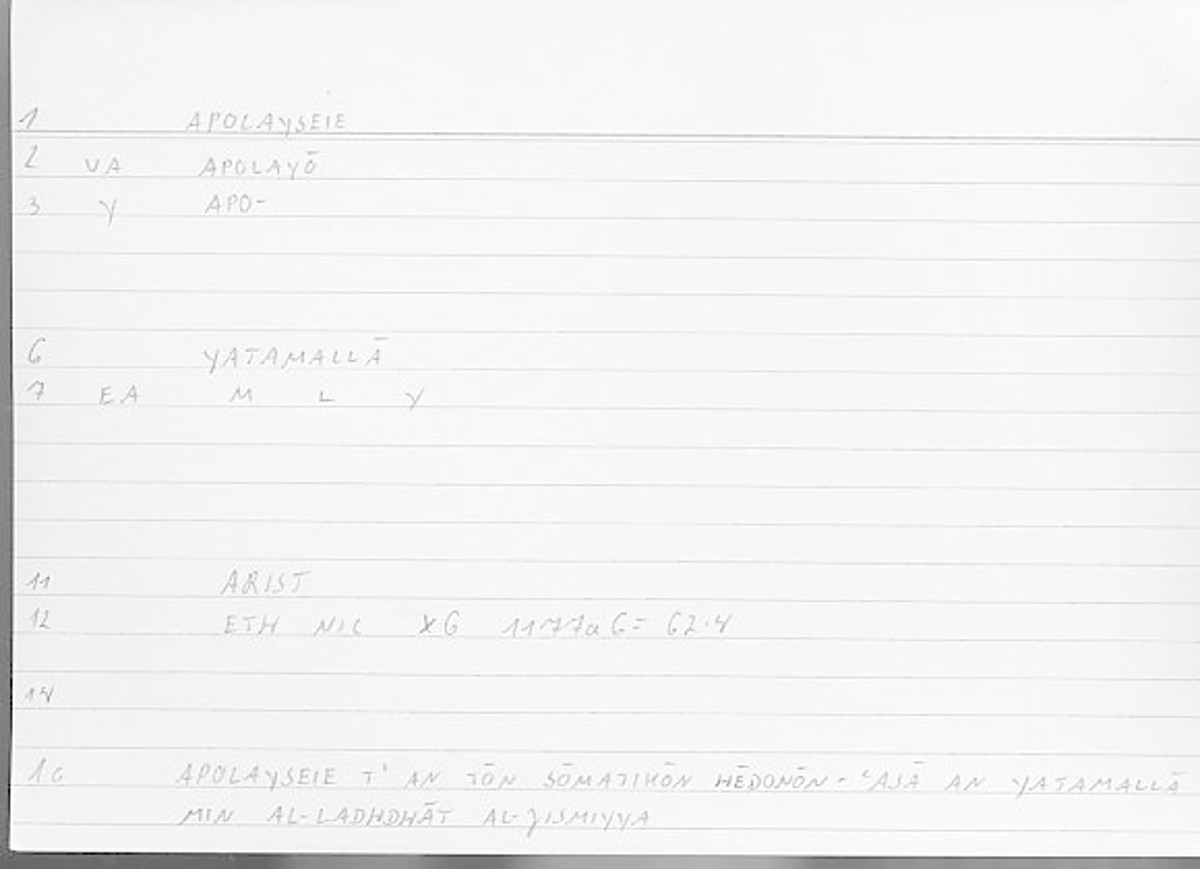 1 APOLAYSEIE
2 VA APOLAYŌ
3 Y APO-
6 YATAMALLĀ
7 EA M L Y
11 ARIST
12 ETH NIC X6 1177a6= 62.4
14
16 APOLAYSEIE T' AN TŌN SŌMATIKŌN HĒDONŌN - ʿASĀ AN YATAMALLĀ
MIN AL-LADHDHĀT AL-JISMIYYA